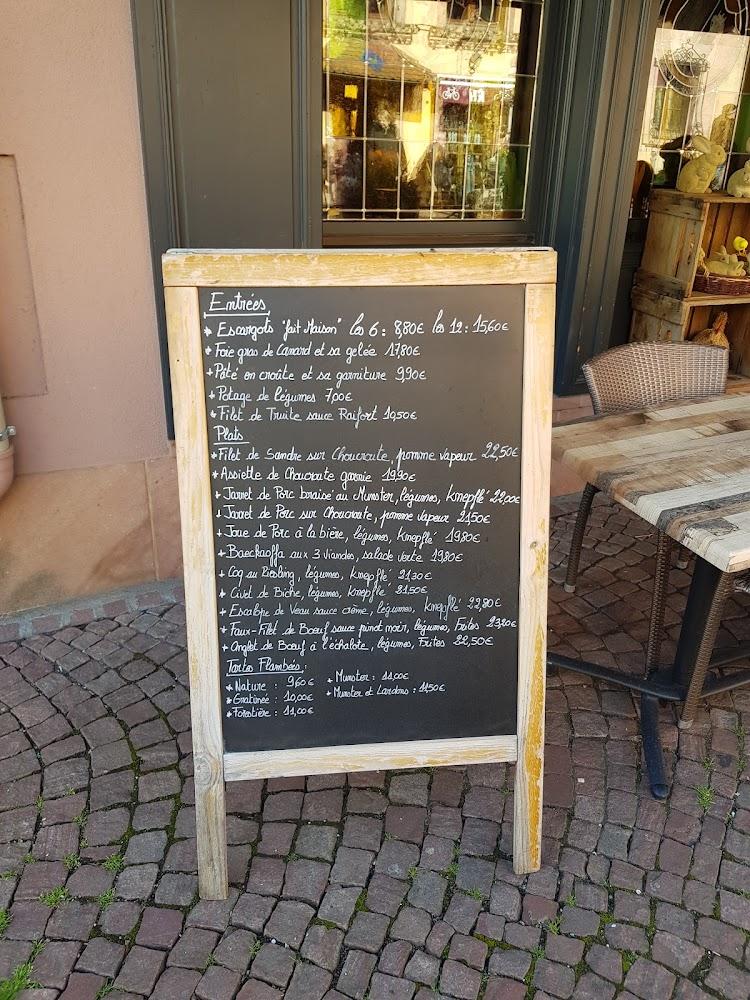 Entrées
* Escargots "fait Maison" les 6 : 8,80€ les 12 : 15,60€
* Foie gras de Canard et sa gelée 17,80€
* Pâté en croûte et sa garniture 9,90€
* Potage de légumes 7,00€
* Filet de Truite sauce Raifort 10,50€
Plats
* Filet de Sandre sur Choucroute, pomme vapeur 22,50€
* Assiette de Choucroute garnie 19,90€
* Jarret de Porc braisé au Munster, légumes, knepflé 22,00€
* Jarret de Porc sur Choucroute, pomme vapeur 21,50€
* Joue de Porc à la bière, légumes, knepflé 19,80€
* Baeckaoffa aux 3 viandes, salade verte 19,80€
* Coq au Riesling, légumes, knepflé 21,30€
* Civet de Biche, légumes, knepflé 21,50€
* Escalope de Veau sauce crème, légumes, knepflé 22,80€
* Faux-Filet de Boeuf sauce pinot noir, légumes, Frites 23,20€
* Onglet de Boeuf à l'échalote, légumes, Frites 22,50€
Tartes Flambées :
* Nature : 9,60€ * Munster : 11,00€
* Gratinée : 10,00€ * Munster et Lardons : 11,50€
* Forestière : 11,00€